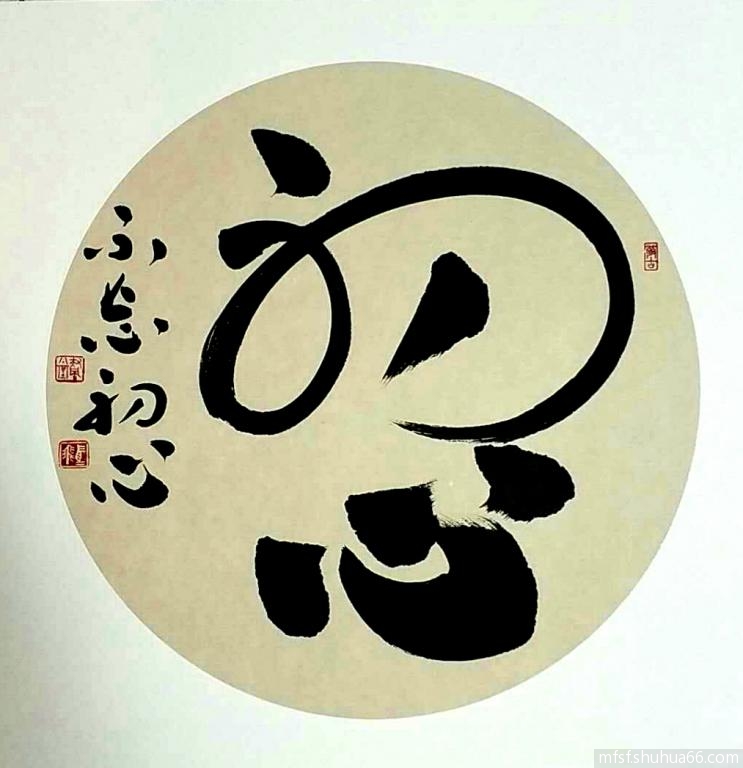 初心
不忘初心
mfsf.shuhua66.com